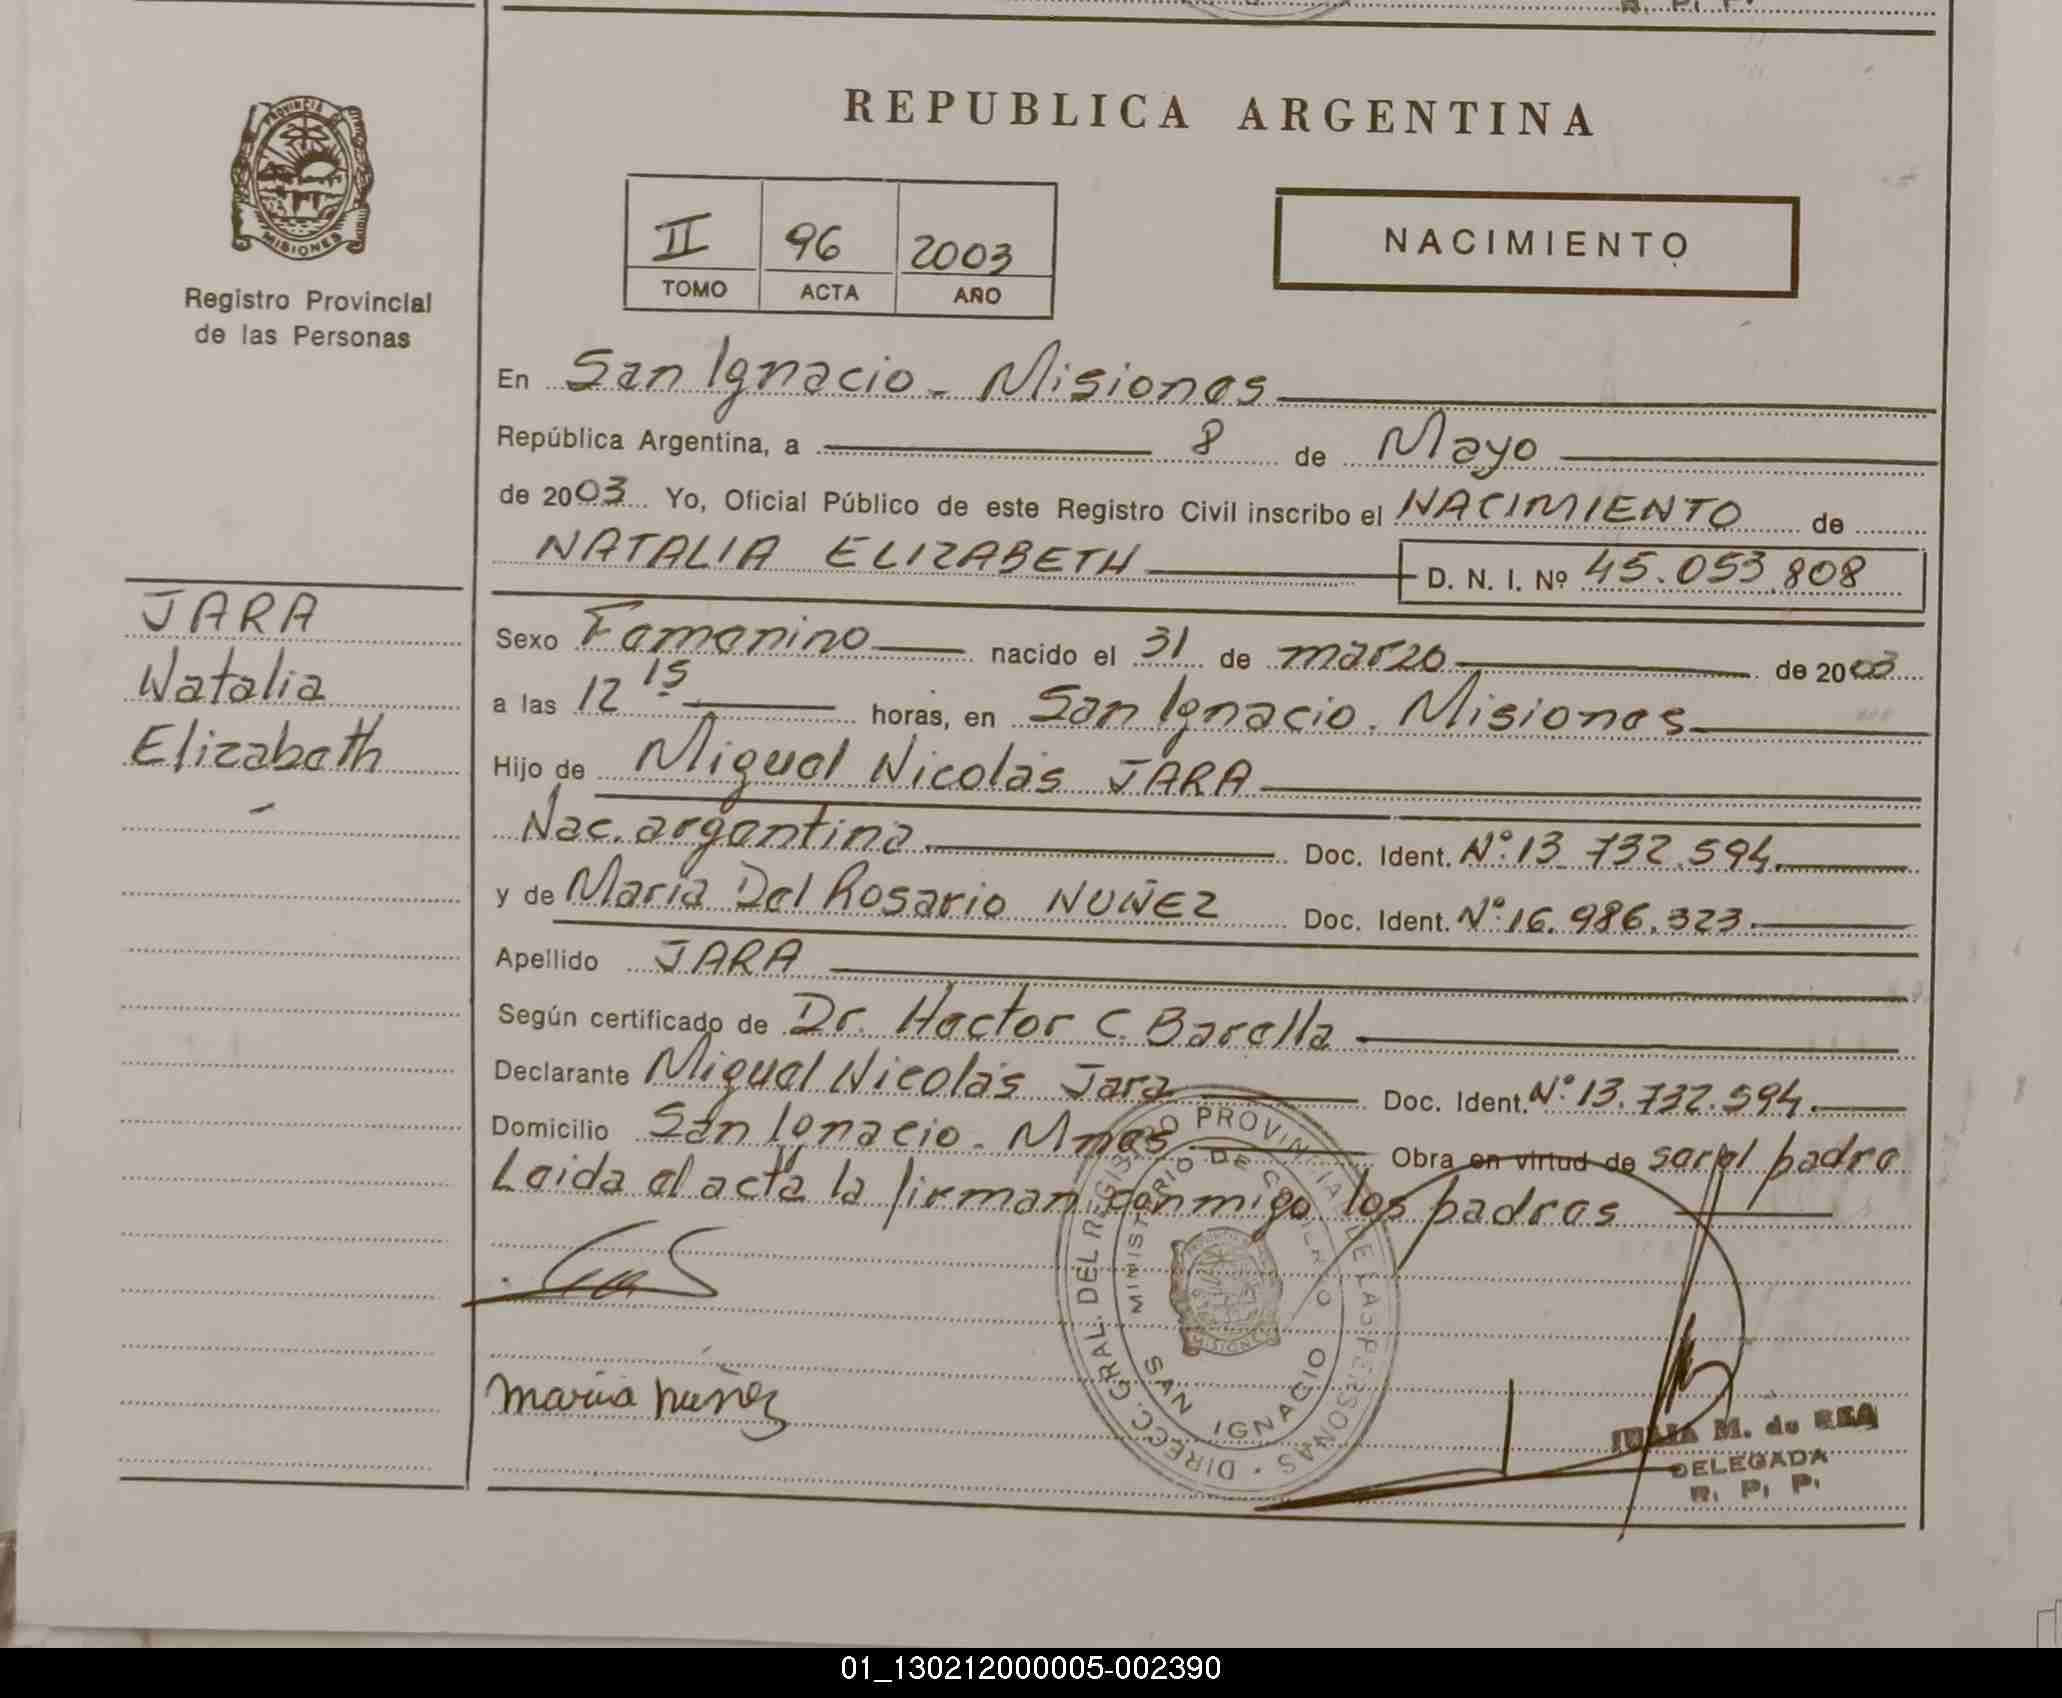 R. P. P.
PROVINCIA DE
MISIONES
Registro Provincial
de las Personas
REPUBLICA ARGENTINA
II 96 2003
TOMO ACTA AÑO
NACIMIENTO
En San Ignacio - Misiones
República Argentina, a 8 de Mayo
de 2003 Yo, Oficial Público de este Registro Civil inscribo el NACIMIENTO de
NATALIA ELIZABETH D. N. I. Nº 45.053.808
JARA
Natalia
Elizabeth
Sexo Femenino nacido el 31 de marzo de 2003
a las 12 15 horas, en San Ignacio. Misiones
Hijo de Miguel Nicolás JARA
Nac. argentina Doc. Ident. Nº 13.732.594.
y de María Del Rosario NUÑEZ Doc. Ident. Nº 16.986.323.
Apellido JARA
Según certificado de Dr. Hector C. Barella
Declarante Miguel Nicolás Jara Doc. Ident. Nº 13.732.594.
Domicilio San Ignacio - Mnes Obra en virtud de ser el padre
Leida el acta la firman conmigo los padres
DIRECC. GRAL. DEL REGISTRO PROVINCIAL DE LAS PERSONAS
MINISTERIO DE GOBIERNO
SAN IGNACIO
MISIONES
maria nuñez
JULIA M. de REA
DELEGADA
R. P. P.
01_130212000005-002390